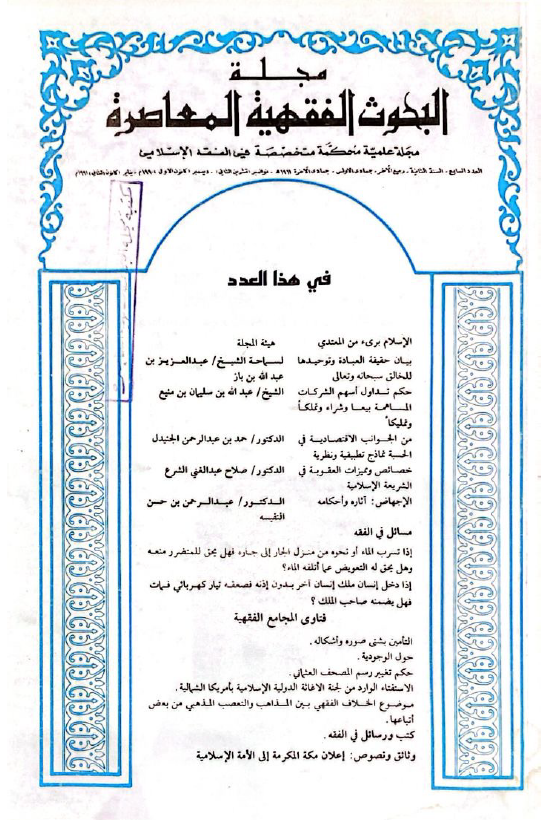 مجلة
البحوث الفقهية المعاصرة
مجلة علمية محكمة متخصصة في الفقه الإسلامي
العدد السابع - السنة الثانية - ربيع الآخر، جمادى الأولى، جمادى الآخرة ١٤١١هـ - نوفمبر (تشرين الثاني)، ديسمبر (كانون الأول) ١٩٩٠م / يناير (كانون الثاني) ١٩٩١م
في هذا العدد
الإسلام برىء من المعتدي هيئة المجلة
بيان حقيقة العبادة وتوحيدها لسماحة الشيخ/ عبدالعزيز بن
للخالق سبحانه وتعالى عبد الله بن باز
حكم تداول أسهم الشركات الشيخ/ عبد الله بن سليمان بن منيع
المساهمة بيعا وشراء وتملكاً
وتمليكاً
من الجوانب الاقتصادية في الدكتور/ حمد بن عبدالرحمن الجنيدل
الحسبة نماذج تطبيقية ونظرية
خصائص ومميزات العقوبة في الدكتور/ صلاح عبدالغني الشرع
الشريعة الإسلامية
الإجهاض: آثاره وأحكامه الدكتور/ عبدالرحمن بن حسن
النفيسه
مسائل في الفقه
إذا تسرب الماء أو نحوه من منزل الجار إلى جاره فهل يحق للمتضرر منعه
وهل يحق له التعويض عما أتلفه الماء؟
إذا دخل إنسان ملك إنسان آخر بدون إذنه فصعقه تيار كهربائي فمات
فهل يضمنه صاحب الملك ؟
فتاوى المجامع الفقهية
التأمين بشتى صوره وأشكاله .
حول الوجودية .
حكم تغيير رسم المصحف العثماني .
الاستفتاء الوارد من لجنة الاغاثة الدولية الإسلامية بأمريكا الشمالية .
موضوع الخلاف الفقهي بين المذاهب والتعصب المذهبي من بعض
أتباعها .
كتب ورسائل في الفقه .
وثائق ونصوص: إعلان مكة المكرمة إلى الأمة الإسلامية